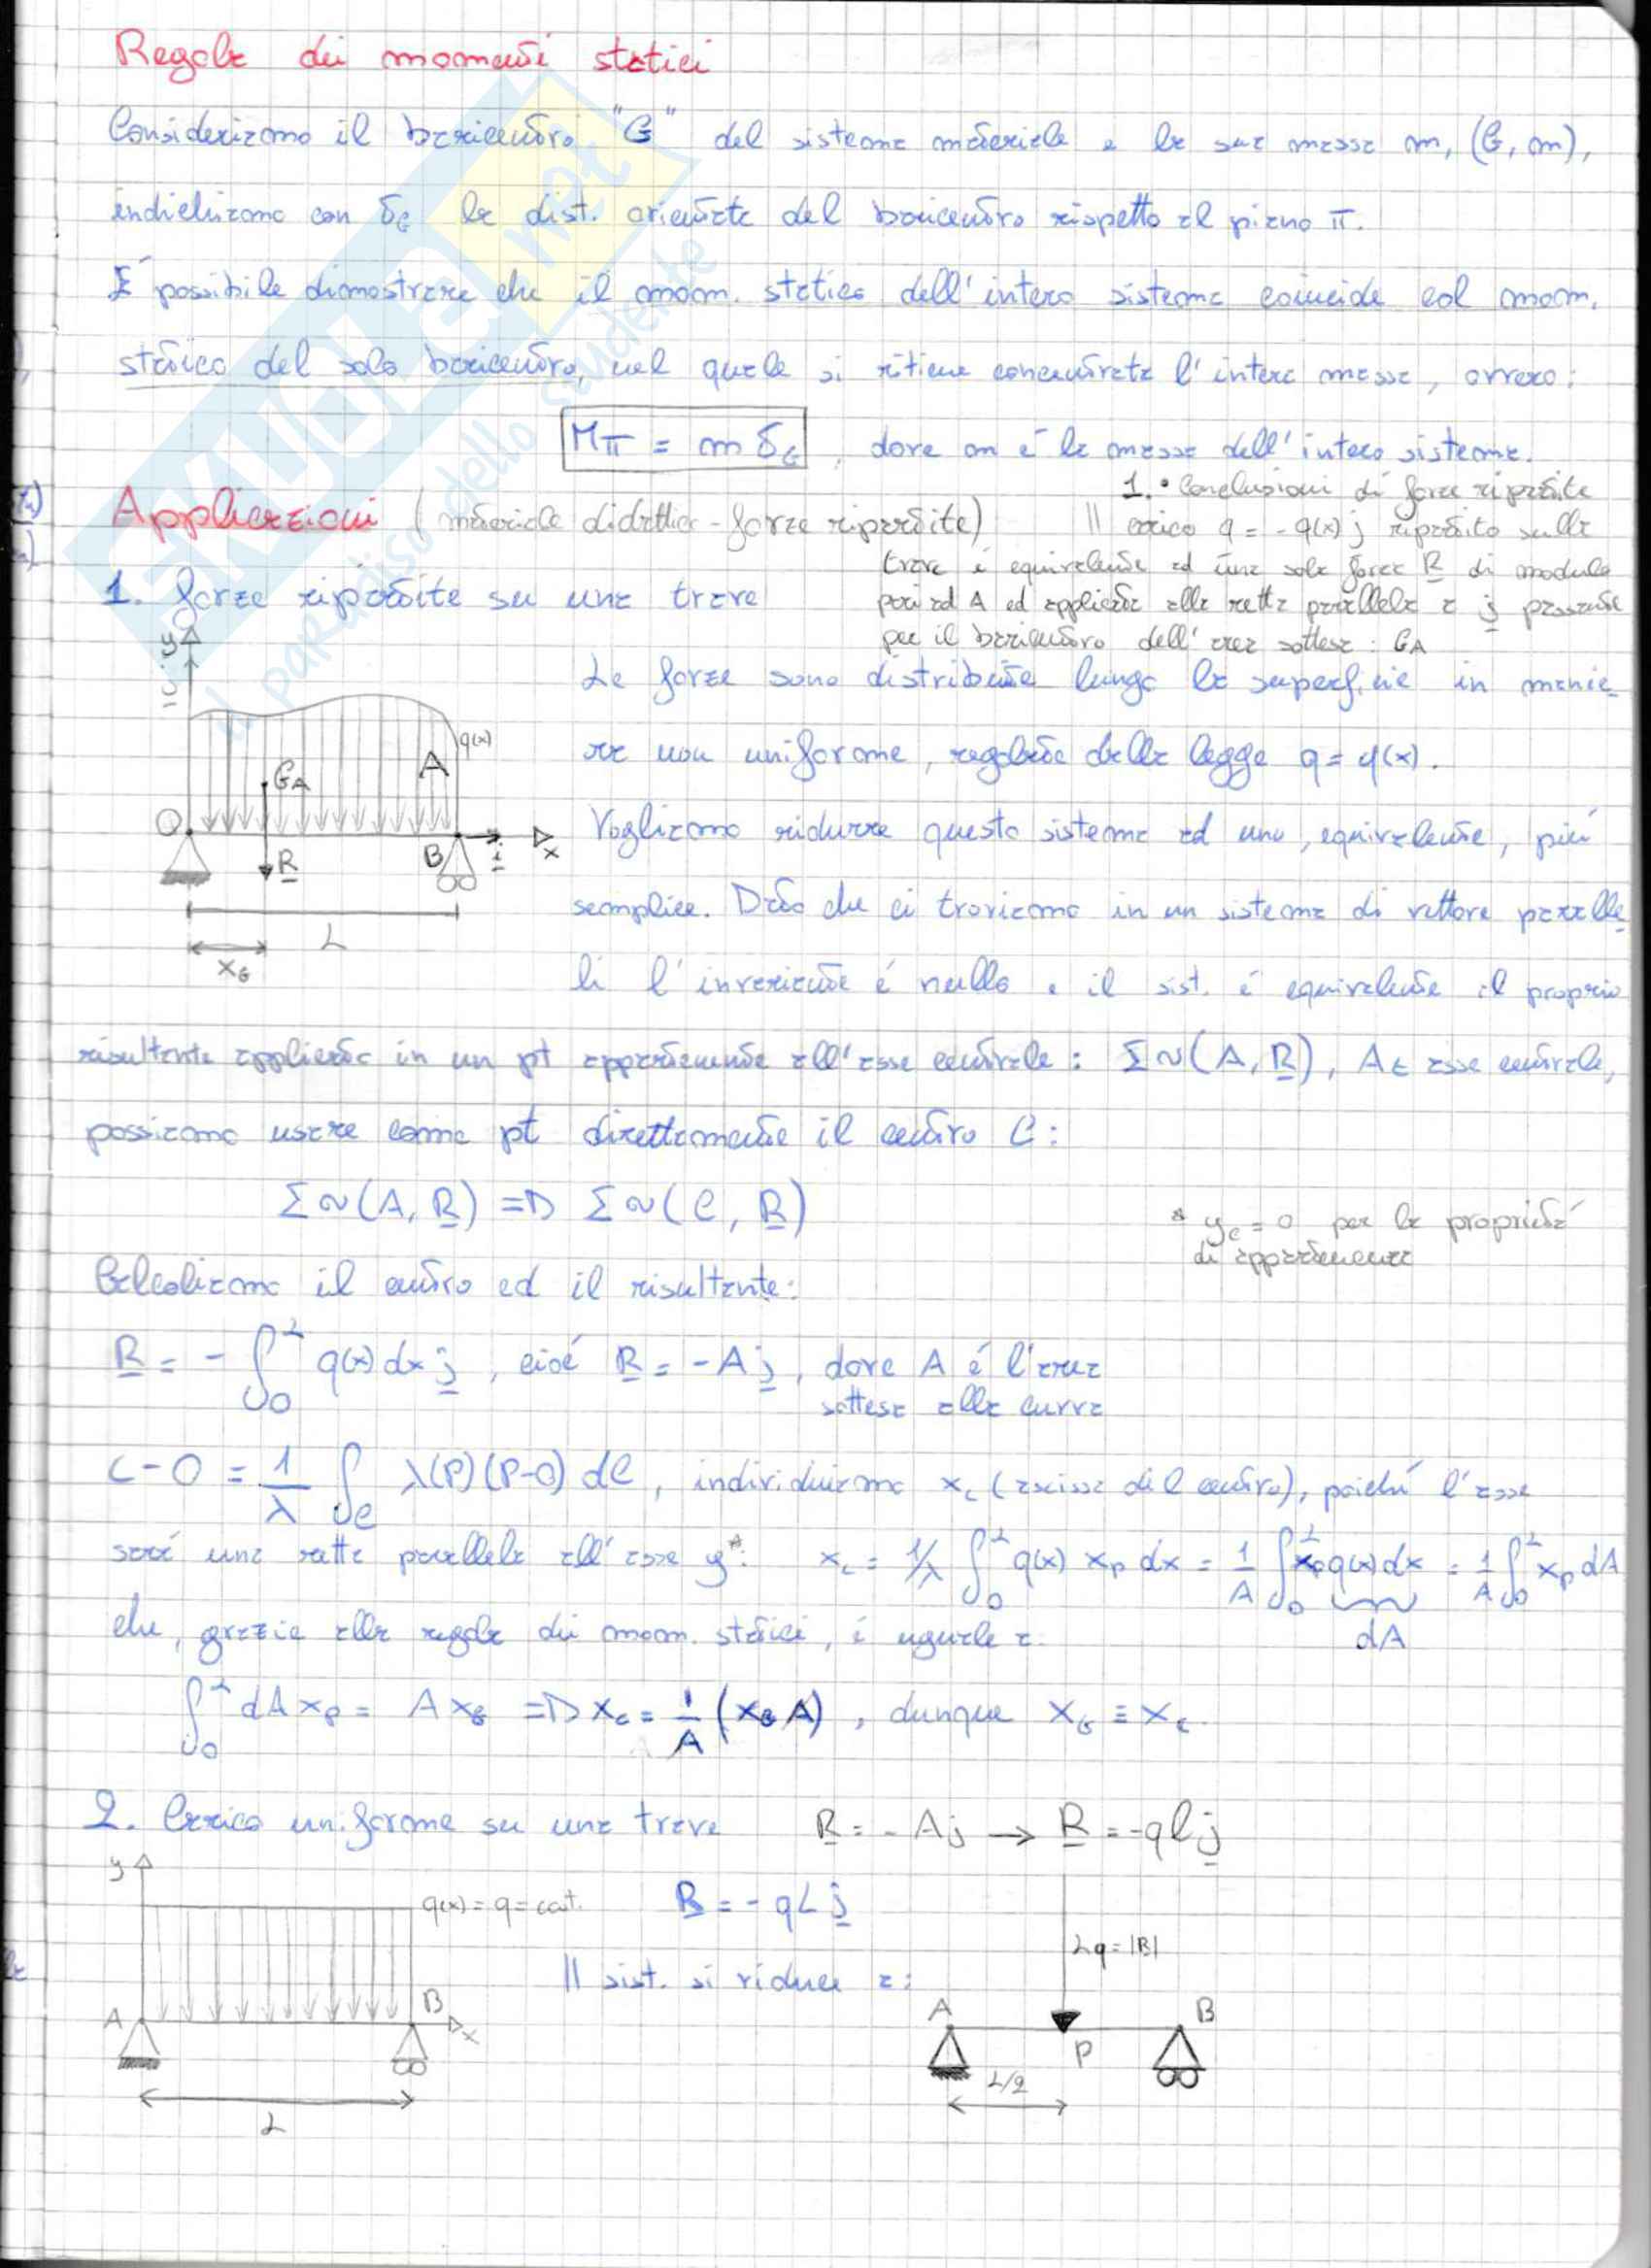 Regola dei momenti statici
Consideriamo il baricentro "G" del sistema materiale e la sua massa m, (G, m),
indichiamo con δG la dist. orientata del baricentro rispetto al piano π.
É possibile dimostrare che il mom. statico dell'intero sistema coincide col mom.
statico del solo baricentro, nel quale si ritiene concentrata l'intera massa, ovvero:
Mπ = m δG , dove m é la massa dell'intero sistema.
Applicazioni (materiale didattico - forze ripartite)
1. • Conclusioni di forze ripartite
Il carico q = -q(x) j ripartito sulla
trave é equivalente ad una sola forza R di modulo
pari ad A ed applicata alla retta parallela a j passante
per il baricentro dell'area sottesa : GA
1. Forze ripartite su una trave
y
j
q(x)
A
GA
O
R
B
i
x
L
xG
Le forze sono distribuite lungo la superficie in manie-
ra non uniforme, regolata dalla legge q = q(x).
Vogliamo ridurre questo sistema ad uno, equivalente, piú
semplice. Dato che ci troviamo in un sistema di vettore paralle-
li l'invariante é nullo e il sist. é equivalente al proprio
risultante applicato in un pt appartenente all'asse centrale : Σ∼(A, R), A ∈ asse centrale,
possiamo usare come pt direttamente il centro C :
Σ∼(A, R) => Σ∼(C, R)
* yc = 0 per la proprietá
di appartenenza
Calcoliamo il centro ed il risultante:
R = - ∫₀ᴸ q(x) dx j , cioé R = -A j , dove A é l'area
sottesa alla curva
C-O = 1/λ ∫e λ(P) (P-O) dl , individuiamo xc (ascissa del centro), poiché l'asse
sará una retta parallela all'asse y*: xc = 1/λ ∫₀ᴸ q(x) xp dx = 1/A ∫₀ᴸ xp q(x) dx = 1/A ∫₀ᴸ xp dA
dA
che, grazie alla regola dei mom. statici, é uguale a
∫₀ᴸ dA xp = A xG => xc = 1/A (xG A) , dunque xG ≡ xc.
2. Carico uniforme su una trave R = - A j → R = -q l j
y
q(x) = q = cost.
R = - q L j
Lq = |R|
Il sist. si riduce a :
A
B
x
L
A
B
P
L/2
SKUOLa.net
il paradiso dello studente